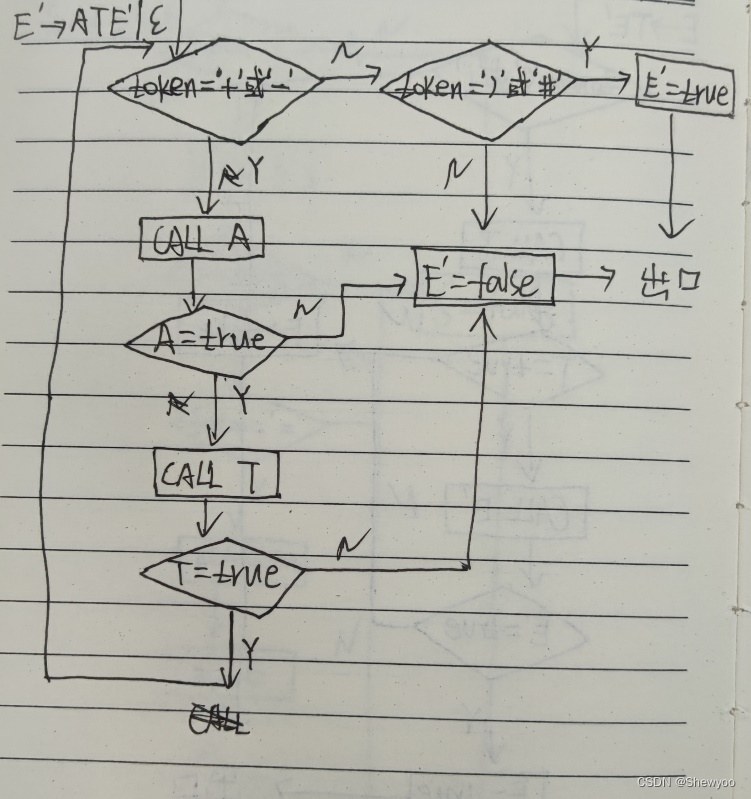 E'→ATE'|ε
token='+'或'-'
N
token=')'或'#'
Y
E'=true
Y
N
CALL A
E'=false
出口
A=true
N
Y
CALL T
T=true
N
Y
CALL
CSDN @Shewyoo